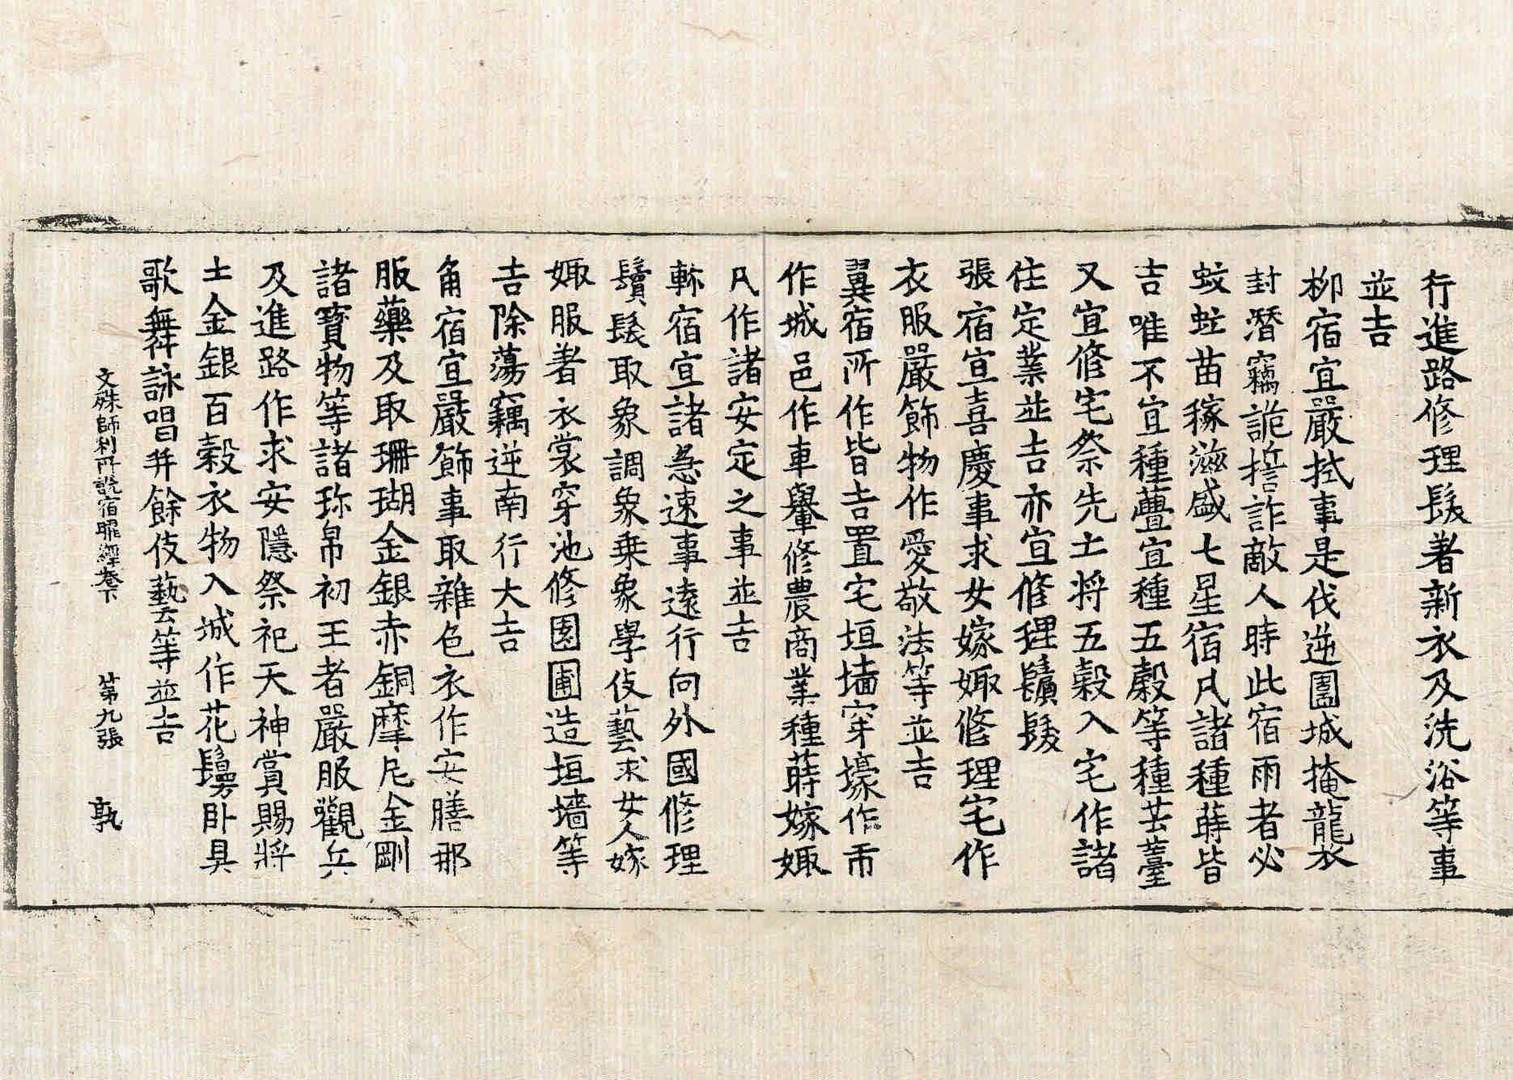 行進路修理髮著新衣及洗浴等事
並吉
柳宿宜嚴拭事是伐逆圍城掩襲
封潛竊詭誓詐敵人時此宿雨者必
蚊虻苗稼滋盛七星宿凡諸種蒔皆
吉唯不宜種疊宜種五穀等種芸薹
又宜修宅祭先士將五穀入宅作諸
住定業並吉亦宜修理鬚髮
張宿宜喜慶事求女嫁娵修理宅作
衣服嚴飾物作愛敬法等並吉
翼宿所作皆吉置宅垣墻穿壕作市
作城邑作車轝修農商業種蒔嫁娵
凡作諸安定之事並吉
軫宿宜諸急速事遠行向外國修理
鬢髮取象調象乘象學伎藝求女人嫁
娵服著衣裳穿池修園圃造垣墻等
吉除蕩竊逆南行大吉
角宿宜嚴飾事取雜色衣作安膳那
服藥及取珊瑚金銀赤銅摩尼金剛
諸寶物等諸珎帛初王者嚴服觀兵
及進路作求安隱祭祀天神賞賜將
士金銀百穀衣物入城作花鬘臥具
歌舞詠唱并餘伎藝等並吉
文殊師利所說宿曜經卷下 第九張 敦